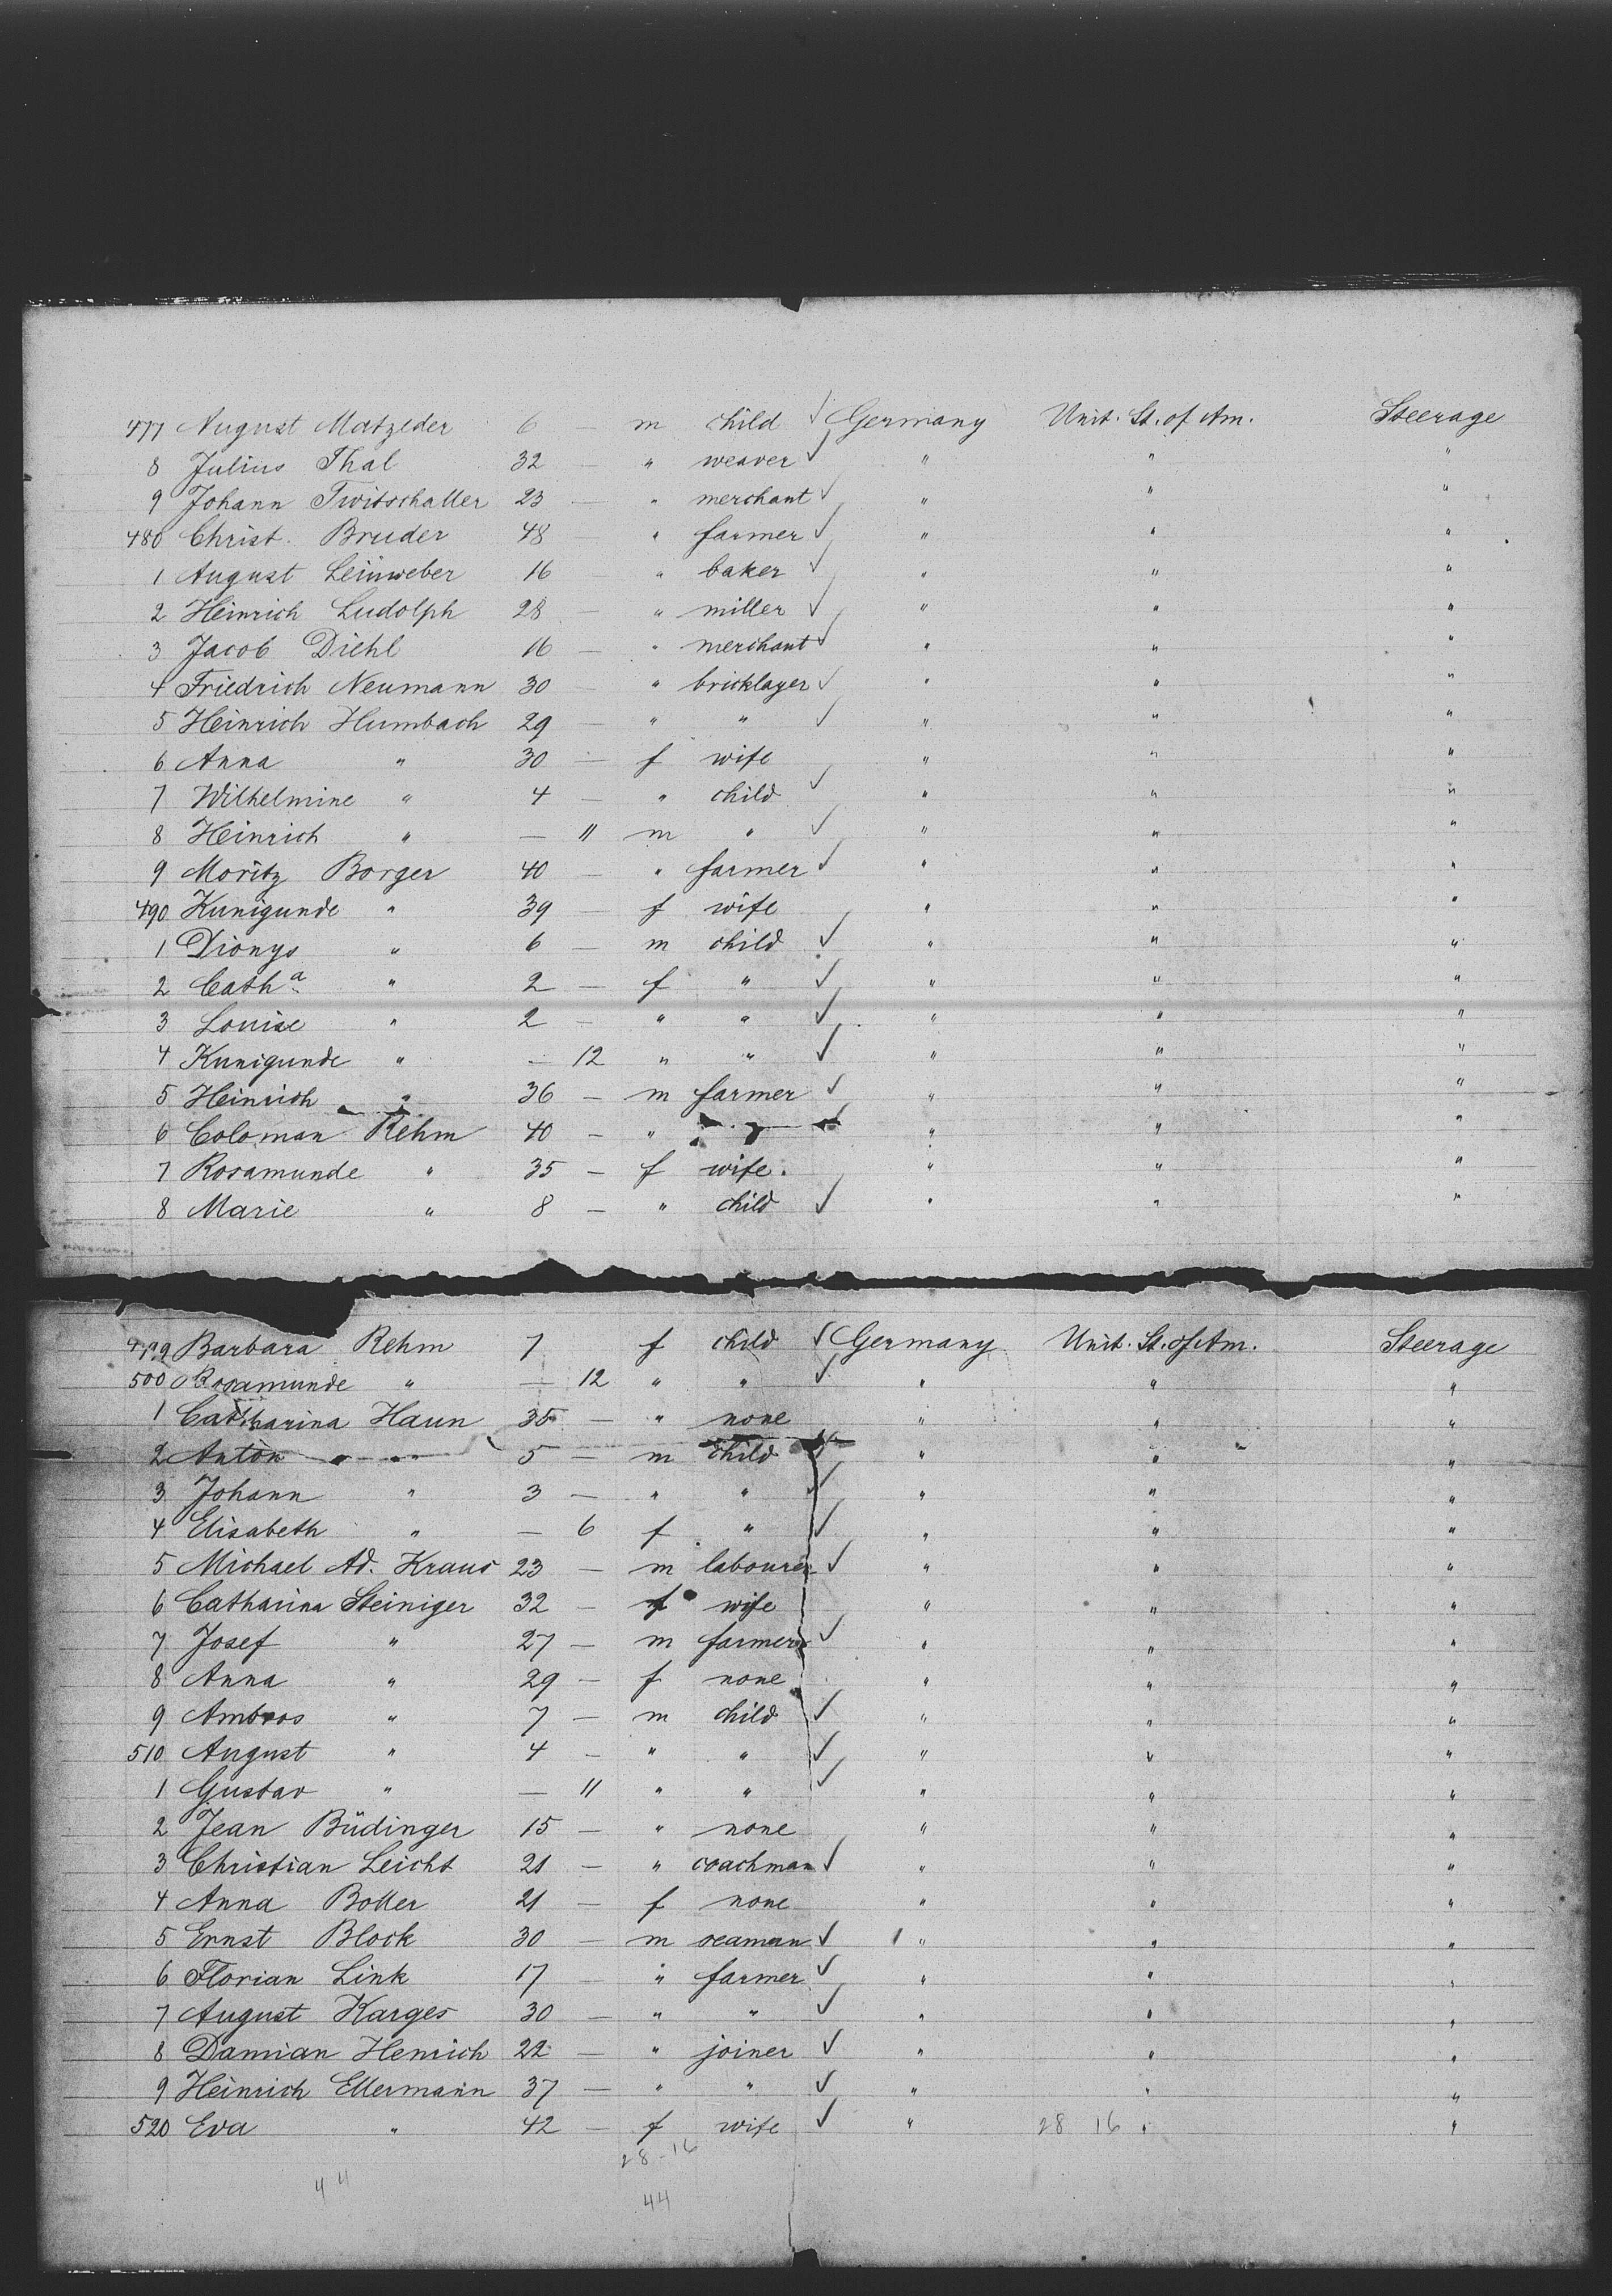 477 August Matzeder 6 — m child ✓ Germany Unit. St. of Am. Steerage
8 Julius Thal 32 — " weaver ✓ " " "
9 Johann 23 — " merchant ✓ " " "
480 Christ. Bruder 48 " farmer ✓ " " "
1 August Leinweber 16 — " baker ✓ " " "
2 Heinrich Ludolph 28 — " miller ✓ " " "
3 Jacob Diehl 16 — " merchant ✓ " " "
4 Friedrich Neumann 30 — " bricklayer ✓ " " "
5 Heinrich Humbach 29 — " " ✓ " " "
6 Anna " 30 — f wife " " "
7 Wilhelmine " 4 — " child ✓ " " "
8 Heinrich " — 11 m " ✓ " " "
9 Moritz Borger 40 — " farmer ✓ " " "
490 Kunigunde " 39 — f wife " " "
1 Dionys " 6 — m child ✓ " " "
2 Cath.a " 2 — f " ✓ " " "
3 Louise " 2 — " " ✓ " " "
4 Kunigunde " — 12 " " ✓ " " "
5 Heinrich " 36 — m farmer ✓ " " "
6 Coloman Rehm 40 — " " ✓ " " "
7 Rosamunde " 35 — f wife. " " "
8 Marie " 8 — " child ✓ " " "
499 Barbara Rehm 7 f child ✓ Germany Unit. St. of Am. Steerage
500 Rosamunde " — 12 " " ✓ " " "
1 Catharina Haun 35 — " none " " "
2 Anton " 5 — m child ✓ " " "
3 Johann " 3 — " " ✓ " " "
4 Elisabeth " — 6 f " ✓ " " "
5 Michael Ad. Kraus 23 — m labourer ✓ " " "
6 Catharina Steiniger 32 — f wife " " "
7 Josef " 27 — m farmer ✓ " " "
8 Anna " 29 — f none " " "
9 Ambros " 7 — m child ✓ " " "
510 August " 4 — " " ✓ " " "
1 Gustav " — 11 " " ✓ " " "
2 Jean Büdinger 15 — " none " " "
3 Christian Leicht 21 — " coachman ✓ " " "
4 Anna Boller 21 — f none " " "
5 Ernst Block 30 — m seaman ✓ 1 " " "
6 Florian Link 17 — " farmer ✓ " " "
7 August Karges 30 — " " ✓ " " "
8 Damian Henrich 22 — " joiner ✓ " " "
9 Heinrich Ellermann 37 — " " ✓ " " "
520 Eva " 42 — f wife ✓ " 28 16 " "
28-16
44 44